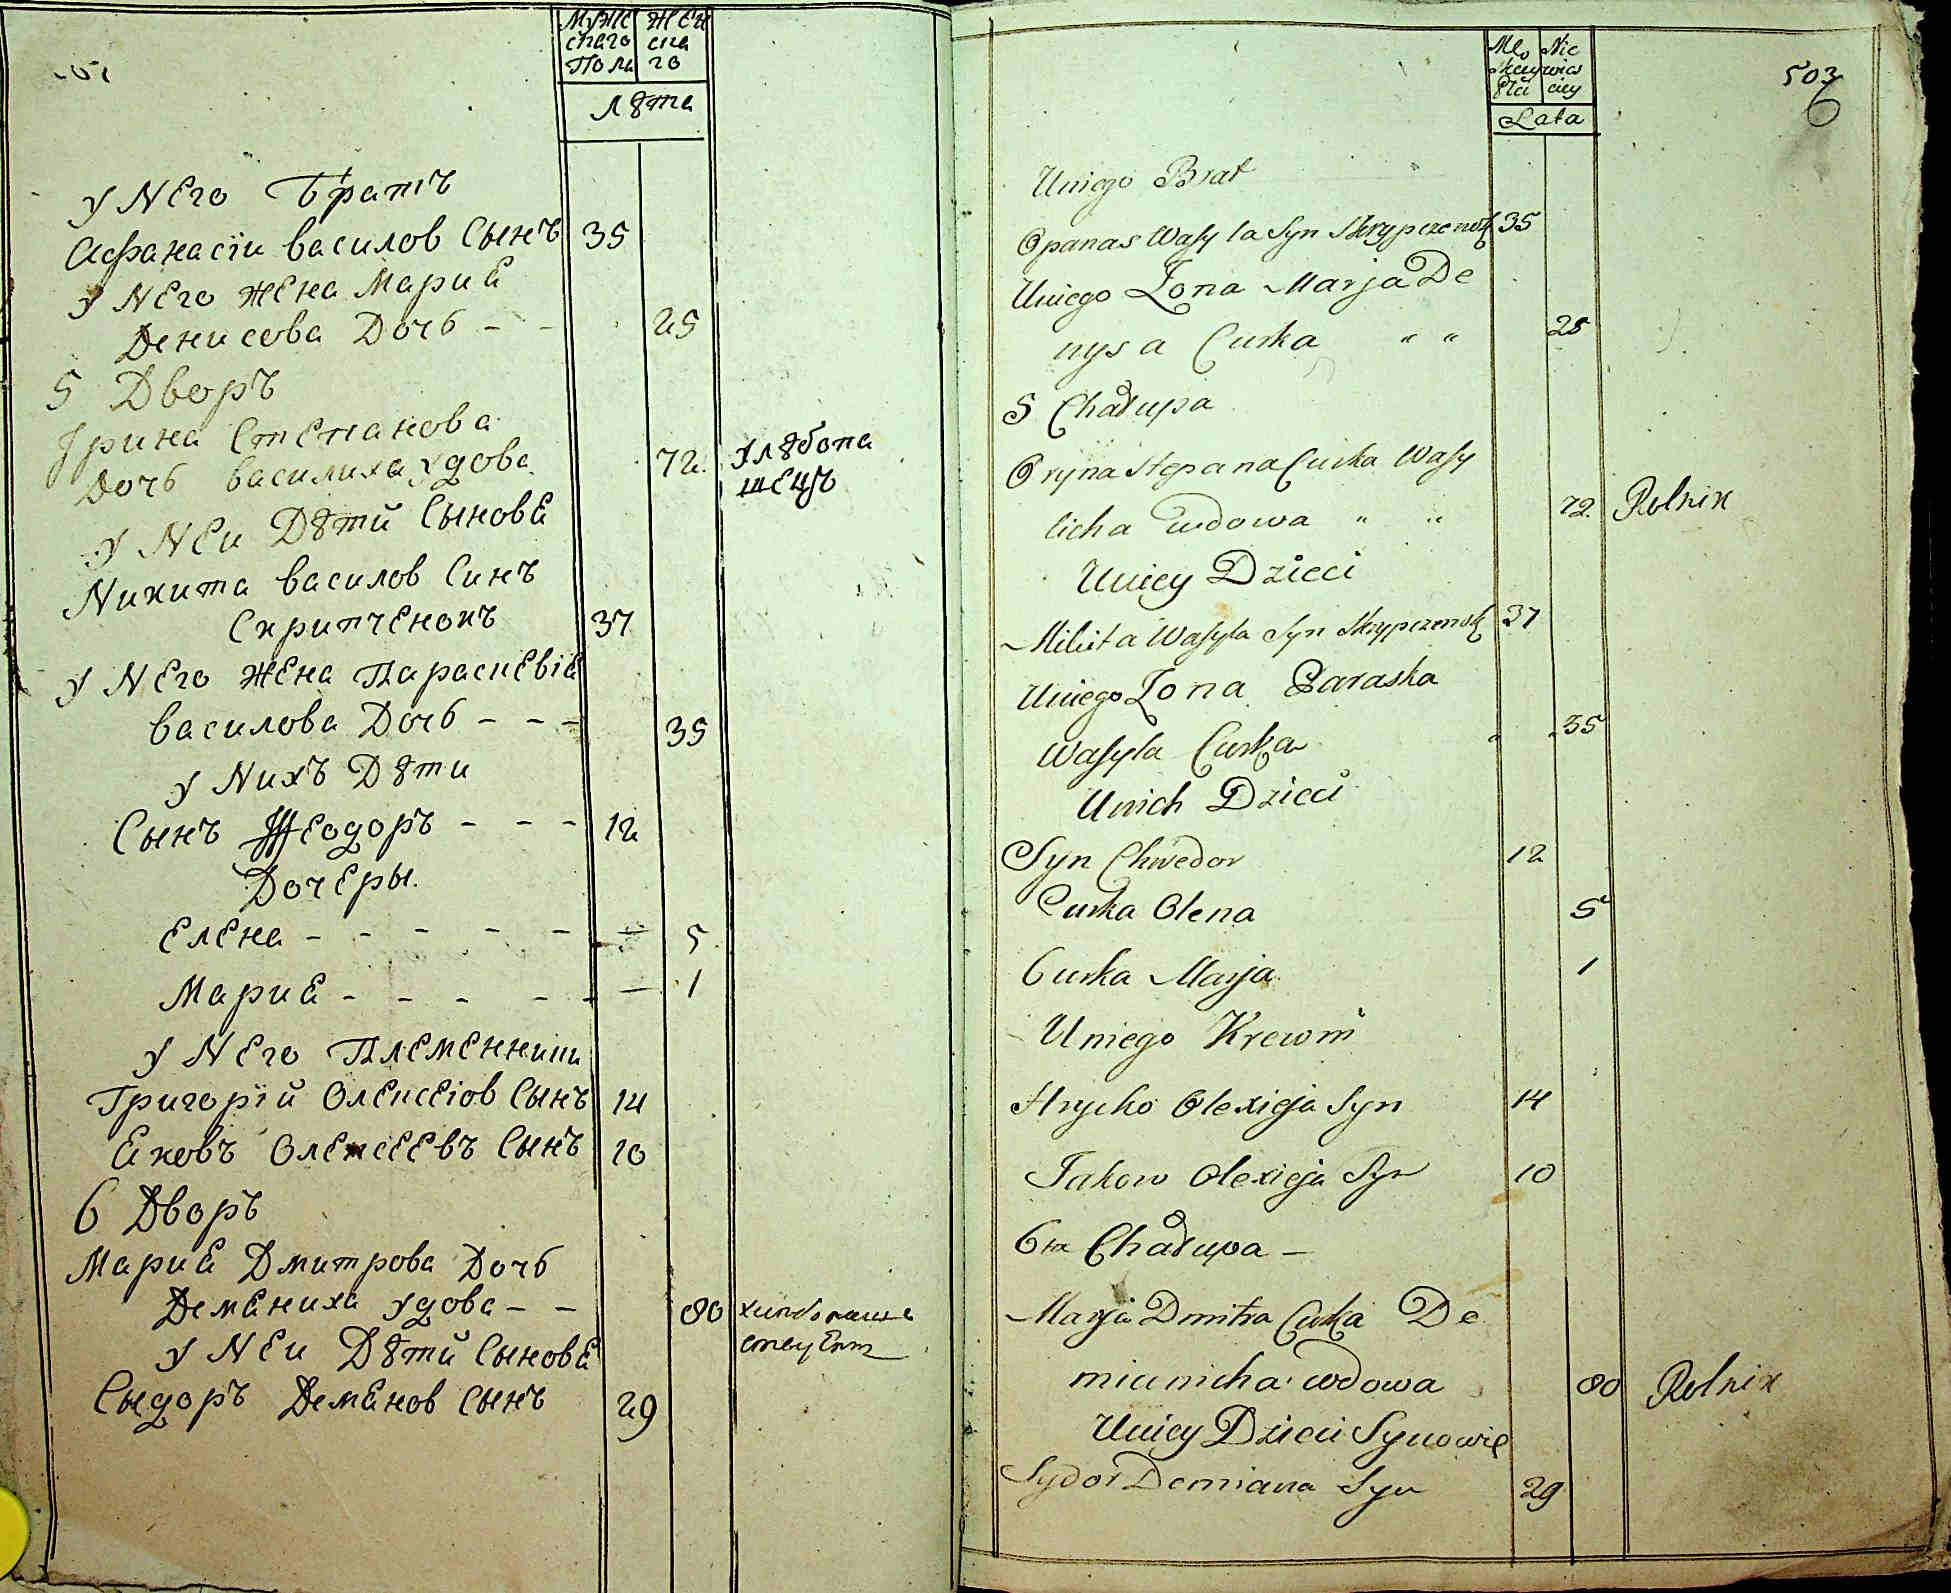 Муже Жен
скаго ска
Пола го
Лѣта
У Него Братъ
Афанасїи василов Сынъ 35
У Него Жена Мариа
Денисова Дочь - - 25
5 Дворъ
Ірина Степанова
Дочь василиха удова 72 Улѣбопа
шецъ
У Неи Дѣтй Сынова
Никита василов Синъ
Скрипченокъ 37
У Него Жена Параскевіа
василова Дочь - - - 35
У Нихъ Дѣти
Сынъ Ѳеодоръ - - - 12
Дочеры.
Елена - - - - - - 5
Мариа - - - - - - 1
У Него Племенники
Григорїй Олексеіов Сынъ 14
Ековъ Олексеевъ Сынъ 10
6 Дворъ
Мариа Дмитрова Дочь
Деманиха удова - - 80
У Неи Дѣтй Сынова
Сыдоръ Деманов Сынъ 29
503
Męs Nie
skiey wies
Płci ciey
Lata
6
Uniego Brat
Opanas Wasyla Syn Skrypczenok 35
Uniego Zona Marja De
nysa Curka " " 25
5 Chałupa
Oryna Stepana Curka Wasy
licha wdowa " " 72. Rolnik
Uniey Dzieci
Mikita Wasyla Syn Skrypczenok 37
Uniego Zona Paraska
Wasyla Curka " " 35
Unich Dzieci
Syn Chwedor 12
Curka Olena 5
Curka Marja 1
Uniego Krewni
Hrycko Olexieja Syn 14
Jakow Olexieja Syn 10
6ta Chałupa -
Marja Dmitra Curka De
mianicha wdowa 80 Rolnik
Uniey Dzieci Synowie
Sydor Demiana Syn 29